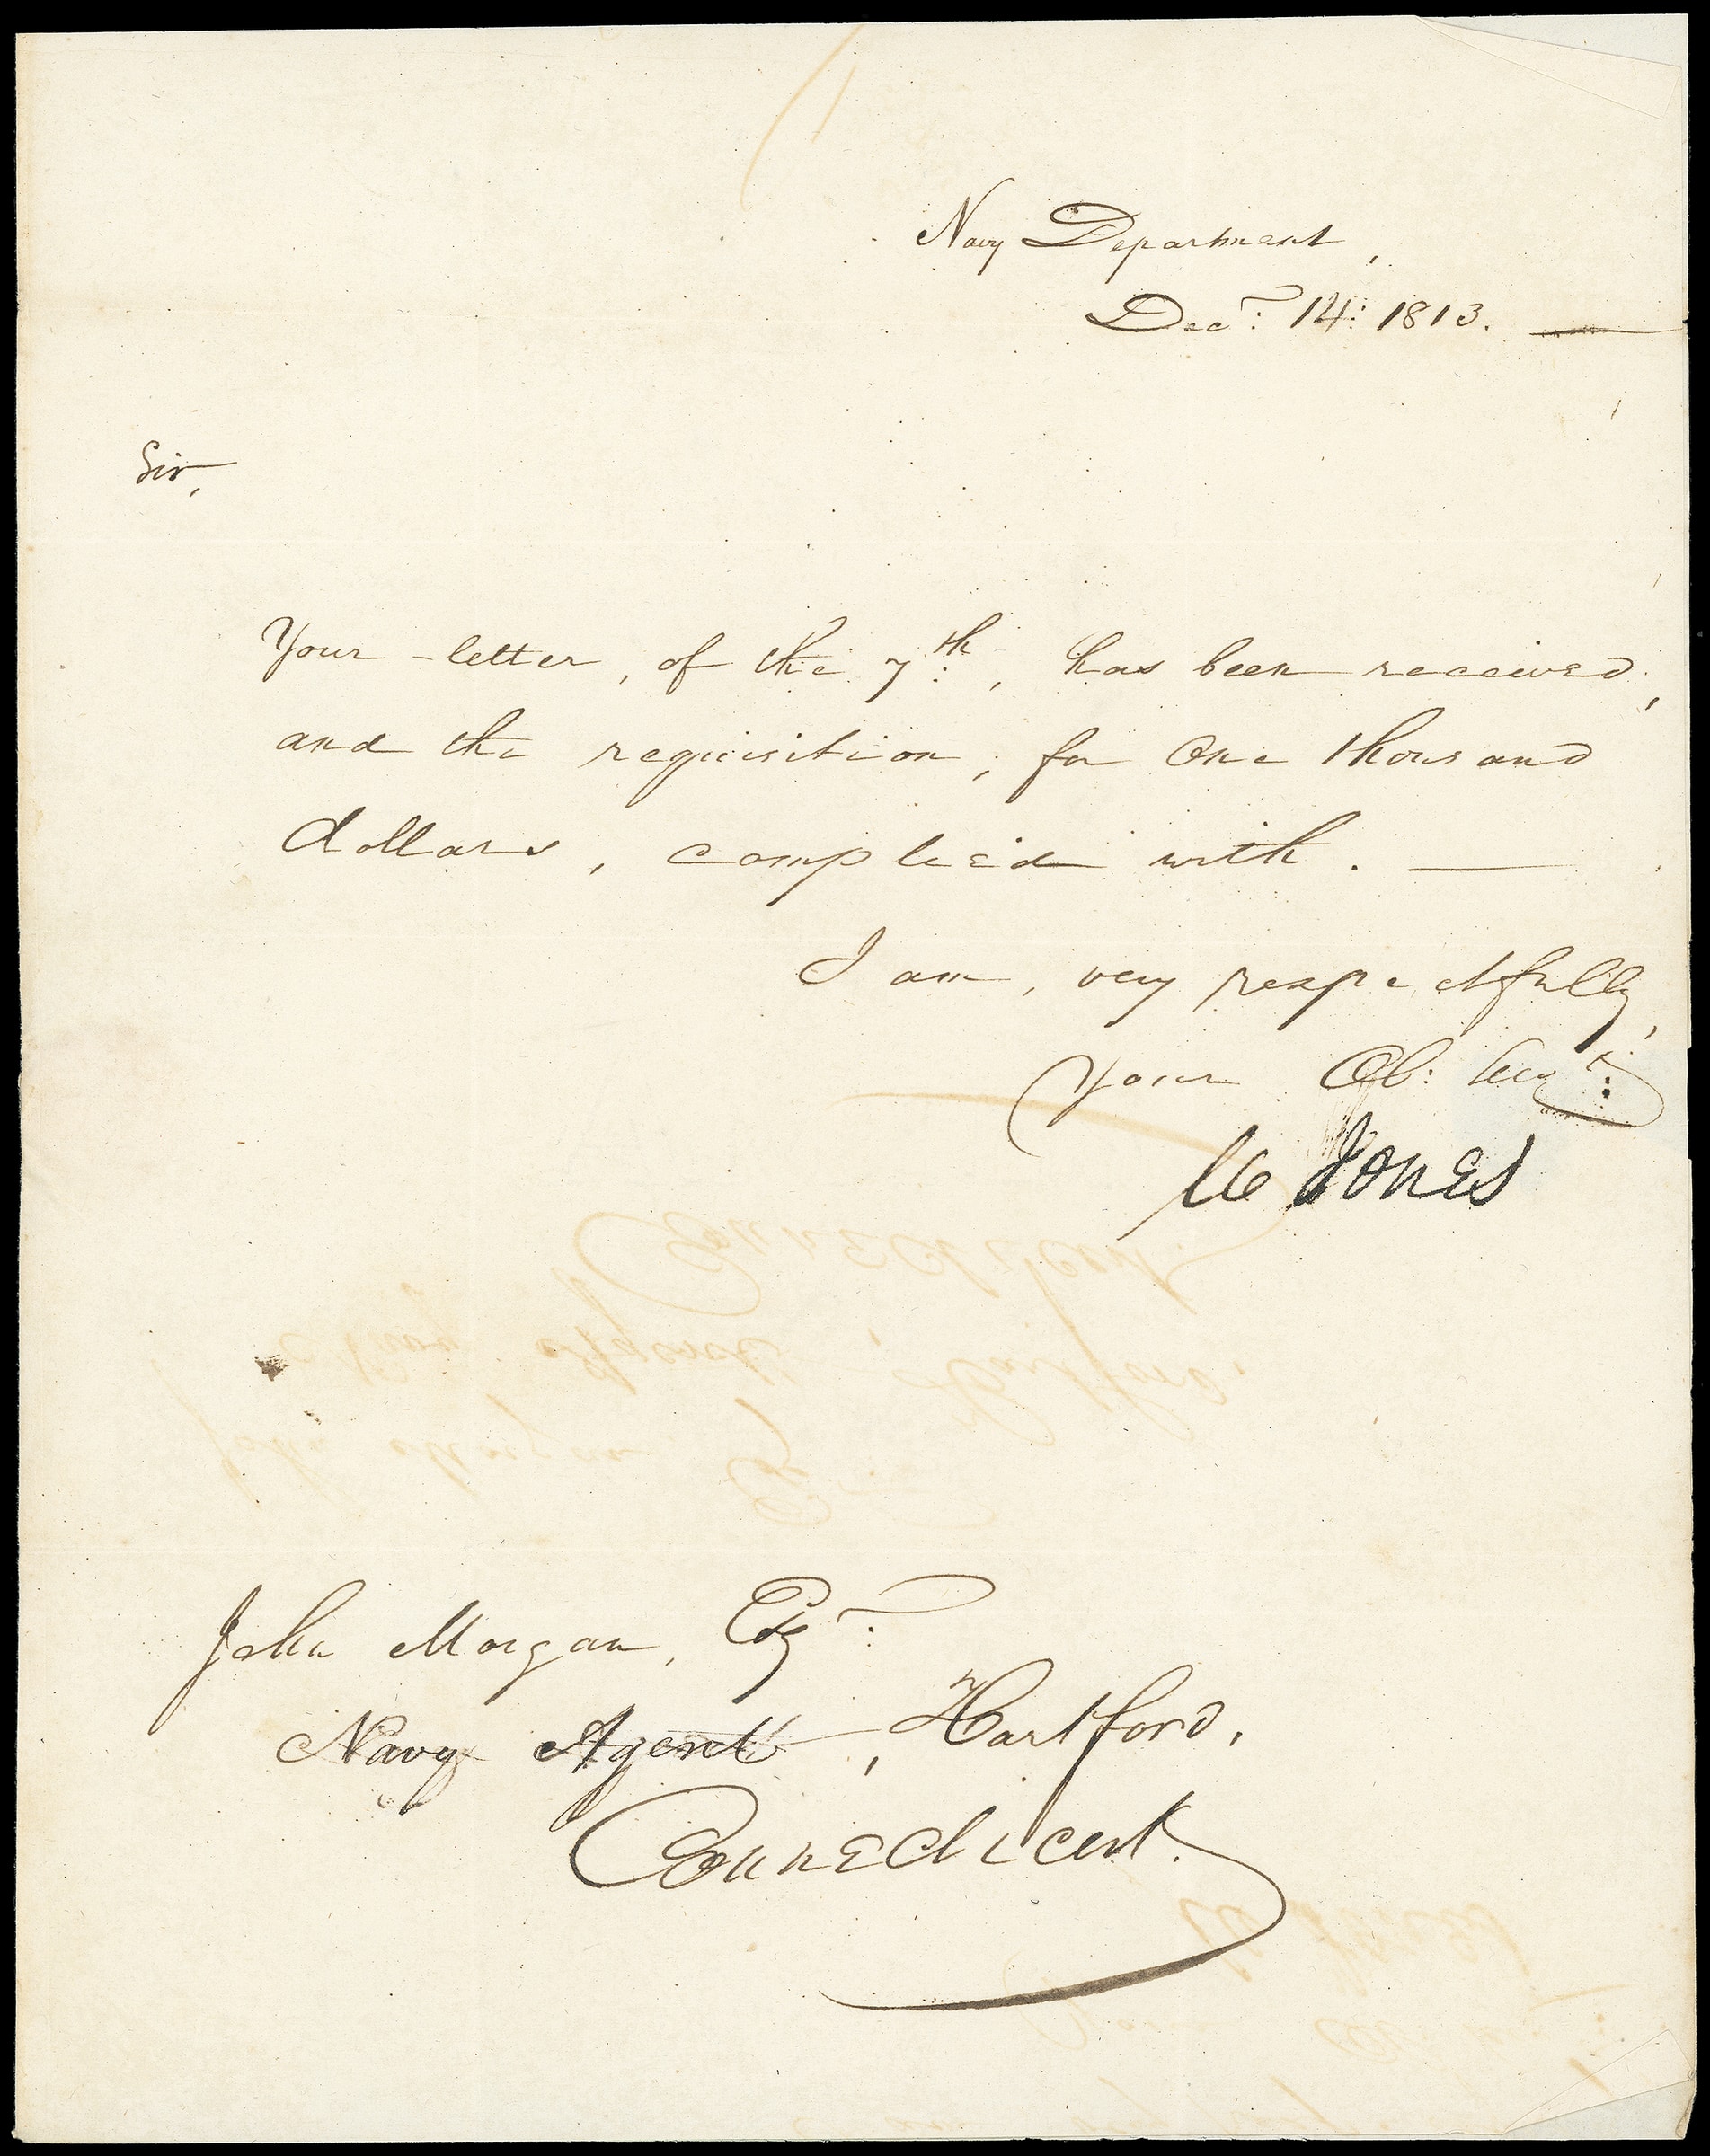 Navy Department,
Decr: 14: 1813.
Sir,
Your letter, of the 7th:, has been received,
and the requisition, for One thousand
dollars, complied with.
I am, very respectfully,
Your Ob: Servt:
W Jones
John Morgan, Esqr:
Navy Agent, Hartford,
Connecticut.